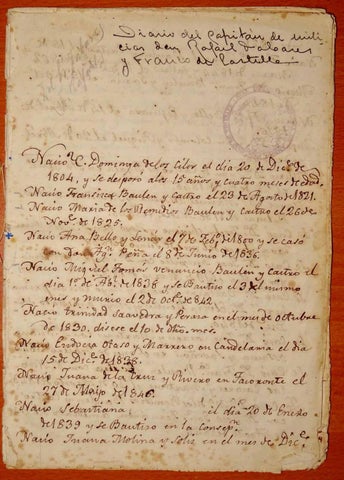 Diario del Capitán de mili
cias don Rafael
y Franco de Castilla
Nació C. Dominga de los el día 20 de Dicᵉ. de
1804, y se desposó a los 15 años y cuatro meses de edad
Nació Francisca Baulen y Castro el 23 de Agosto de 1821.
Nació María de los Remedios Baulen y Castro el 26 de
Novᵉ. de 1825.
Nació Ana Bello y el 7 de Febº. de 1800 y se casó
con Peña el 8 de Junio de 1836.
Nació Miguel Tomás Venancio Baulen y Castro el
día 1º. de Abˡ. de 1838 y se Bautisó el 3 del mismo
mes y murió el 2 de octᵉ. de 842.
Nació trinidad Saavedra y en el mes de octubre
de 1830, dísese el 10 de dho. mes.
Nació y Marrero en Candelaria el día
15 de Dicᵉ. de 1838.
Nació Juana de la Cruz y Rivero en Tacoronte el
27 de de 1846.
Nació Sebastiana el día 20 de Enero
de 1839 y se Bautisó en la
Nació Juana Molina y Solís en el mes de Dicᵉ.